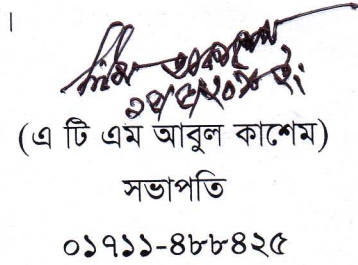 (এ টি এম আবুল কাশেম)
সভাপতি
০১৭১১-৪৮৮৪২৫